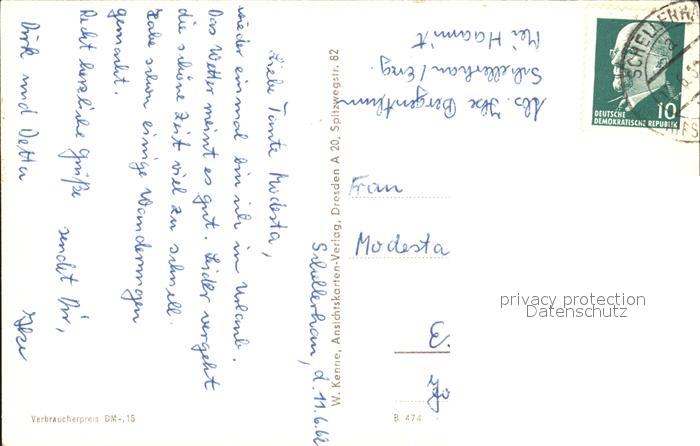 Schellerhau, d. 11.6.62
Liebe Tante Modesta,
wieder einmal bin ich in Urlaub.
Das Wetter meint es gut. Leider vergeht
die schöne Zeit viel zu schnell.
Habe schon einige Wanderungen
gemacht.
Recht herzliche Grüße sendet Dir,
Dirk und Detta
Ilse
Verbraucherpreis DM -,15
W. Kenne, Ansichtskarten-Verlag, Dresden A 20, Spitzwegstr. 82
B 474
Abs. Ilse
Schellerhau/Erzg.
Frau
Modesta
SCHELLERHAU
10
DEUTSCHE
DEMOKRATISCHE REPUBLIK
privacy protection
Datenschutz